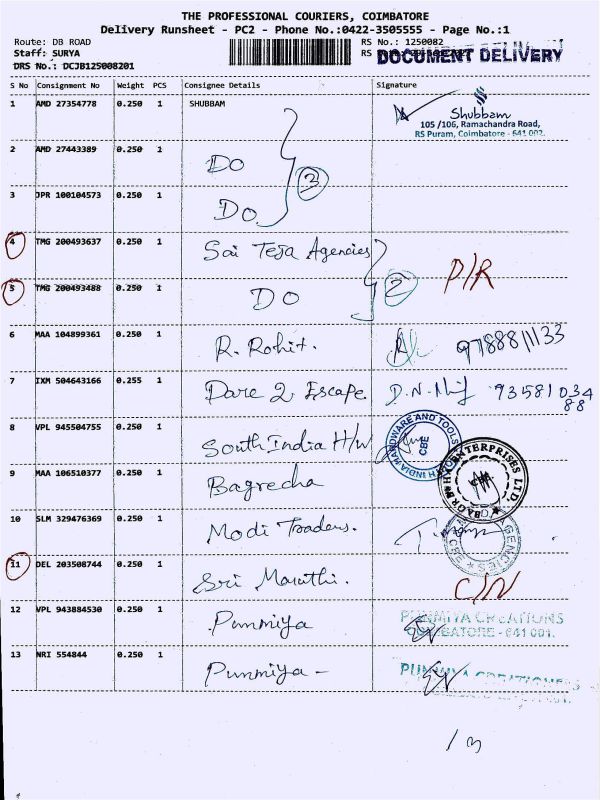 THE PROFESSIONAL COURIERS, COIMBATORE
Delivery Runsheet - PC2 - Phone No.:0422-3505555 - Page No.:1
Route: DB ROAD RS No.: 1250082
Staff: SURYA RS DOCUMENT DELIVERY
DRS No.: DCJB125008201
S No Consignment No Weight PCS Consignee Details Signature
1 AMD 27354778 0.250 1 SHUBBAM
Shubbam
105 /106, Ramachandra Road,
RS Puram, Coimbatore - 641 002.
2 AMD 27443389 0.250 1 DO
3
3 JPR 100104573 0.250 1 DO
4 TMG 200493637 0.250 1 Sai Teja Agencies
P/R
5 TMG 200493488 0.250 1 DO
2
6 MAA 104899361 0.250 1 R. Rohit. 9788811133
7 IXM 504643166 0.255 1 Dare 2 Escape D.N. 93581034
88
8 VPL 945504755 0.250 1 South India H/W
INDIA HARDWARE AND TOOLS
CBE
9 MAA 106510377 0.250 1 Bagrecha
ENTERPRISES LTD.
10 SLM 329476369 0.250 1 Modi Traders.
AGENCIES
CBE
11 DEL 203508744 0.250 1 Sri Maruthi. C/N
12 VPL 943884530 0.250 1 Punmiya
PUNMIYA CREATIONS
COIMBATORE - 641 001.
13 NRI 554844 0.250 1 Punmiya -
PUNMIYA CREATIONS
/ 13